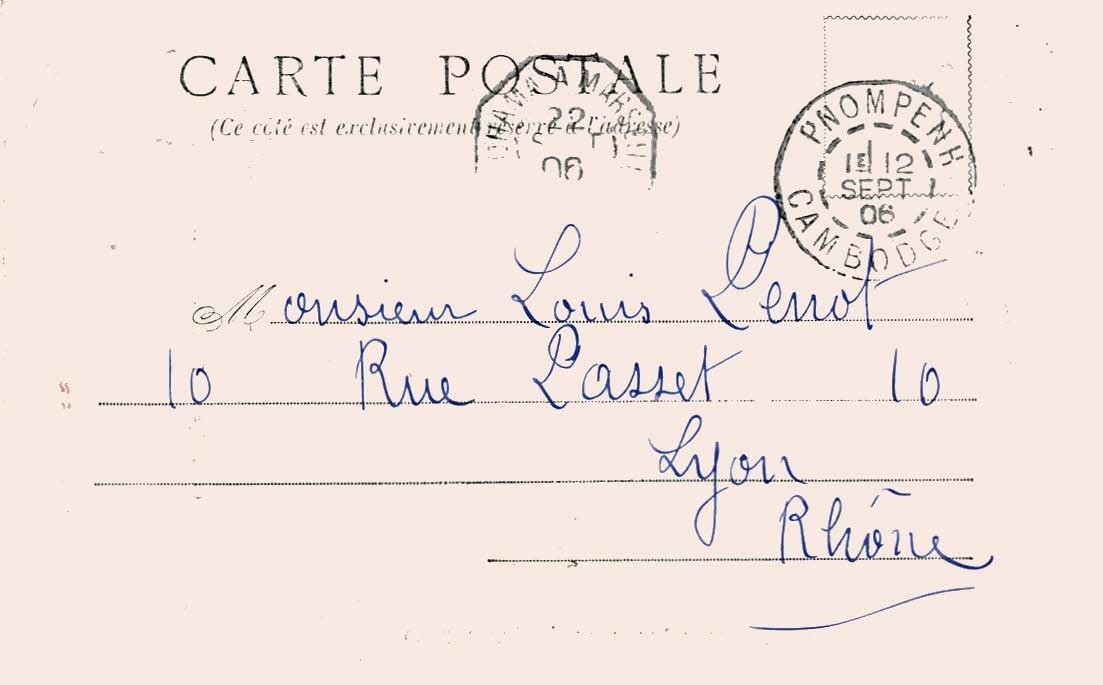 CARTE POSTALE
(Ce côté est exclusivement réservé à l'adresse)
A MARS
22
06
PNOMPENH
1E 12
SEPT
06
CAMBODGE
Monsieur Louis Penot
10 Rue Passet 10
Lyon
Rhône